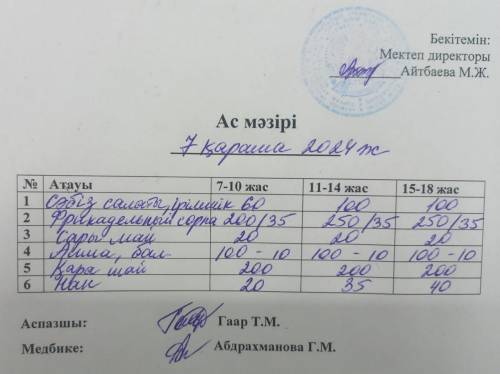 Бекітемін:
Мектеп директоры
Айтбаева М.Ж.
Ас мәзірі
7 қараша 2024 ж
№ Атауы 7-10 жас 11-14 жас 15-18 жас
1 Сәбіз салаты, ірімшік 60 100 100
2 Фрикадельный сорпа 200/35 250/35 250/35
3 Сары май 20 20 20
4 Алма, бал 100-10 100-10 100-10
5 Қара шай 200 200 200
6 Нан 20 35 40
Аспазшы: Гаар Т.М.
Медбике: Абдрахманова Г.М.